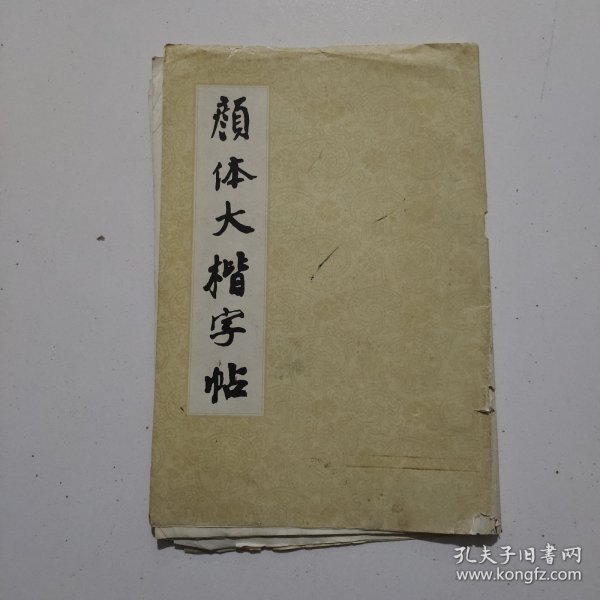 顔体大楷字帖
孔夫子旧書网
www.kongfz.com